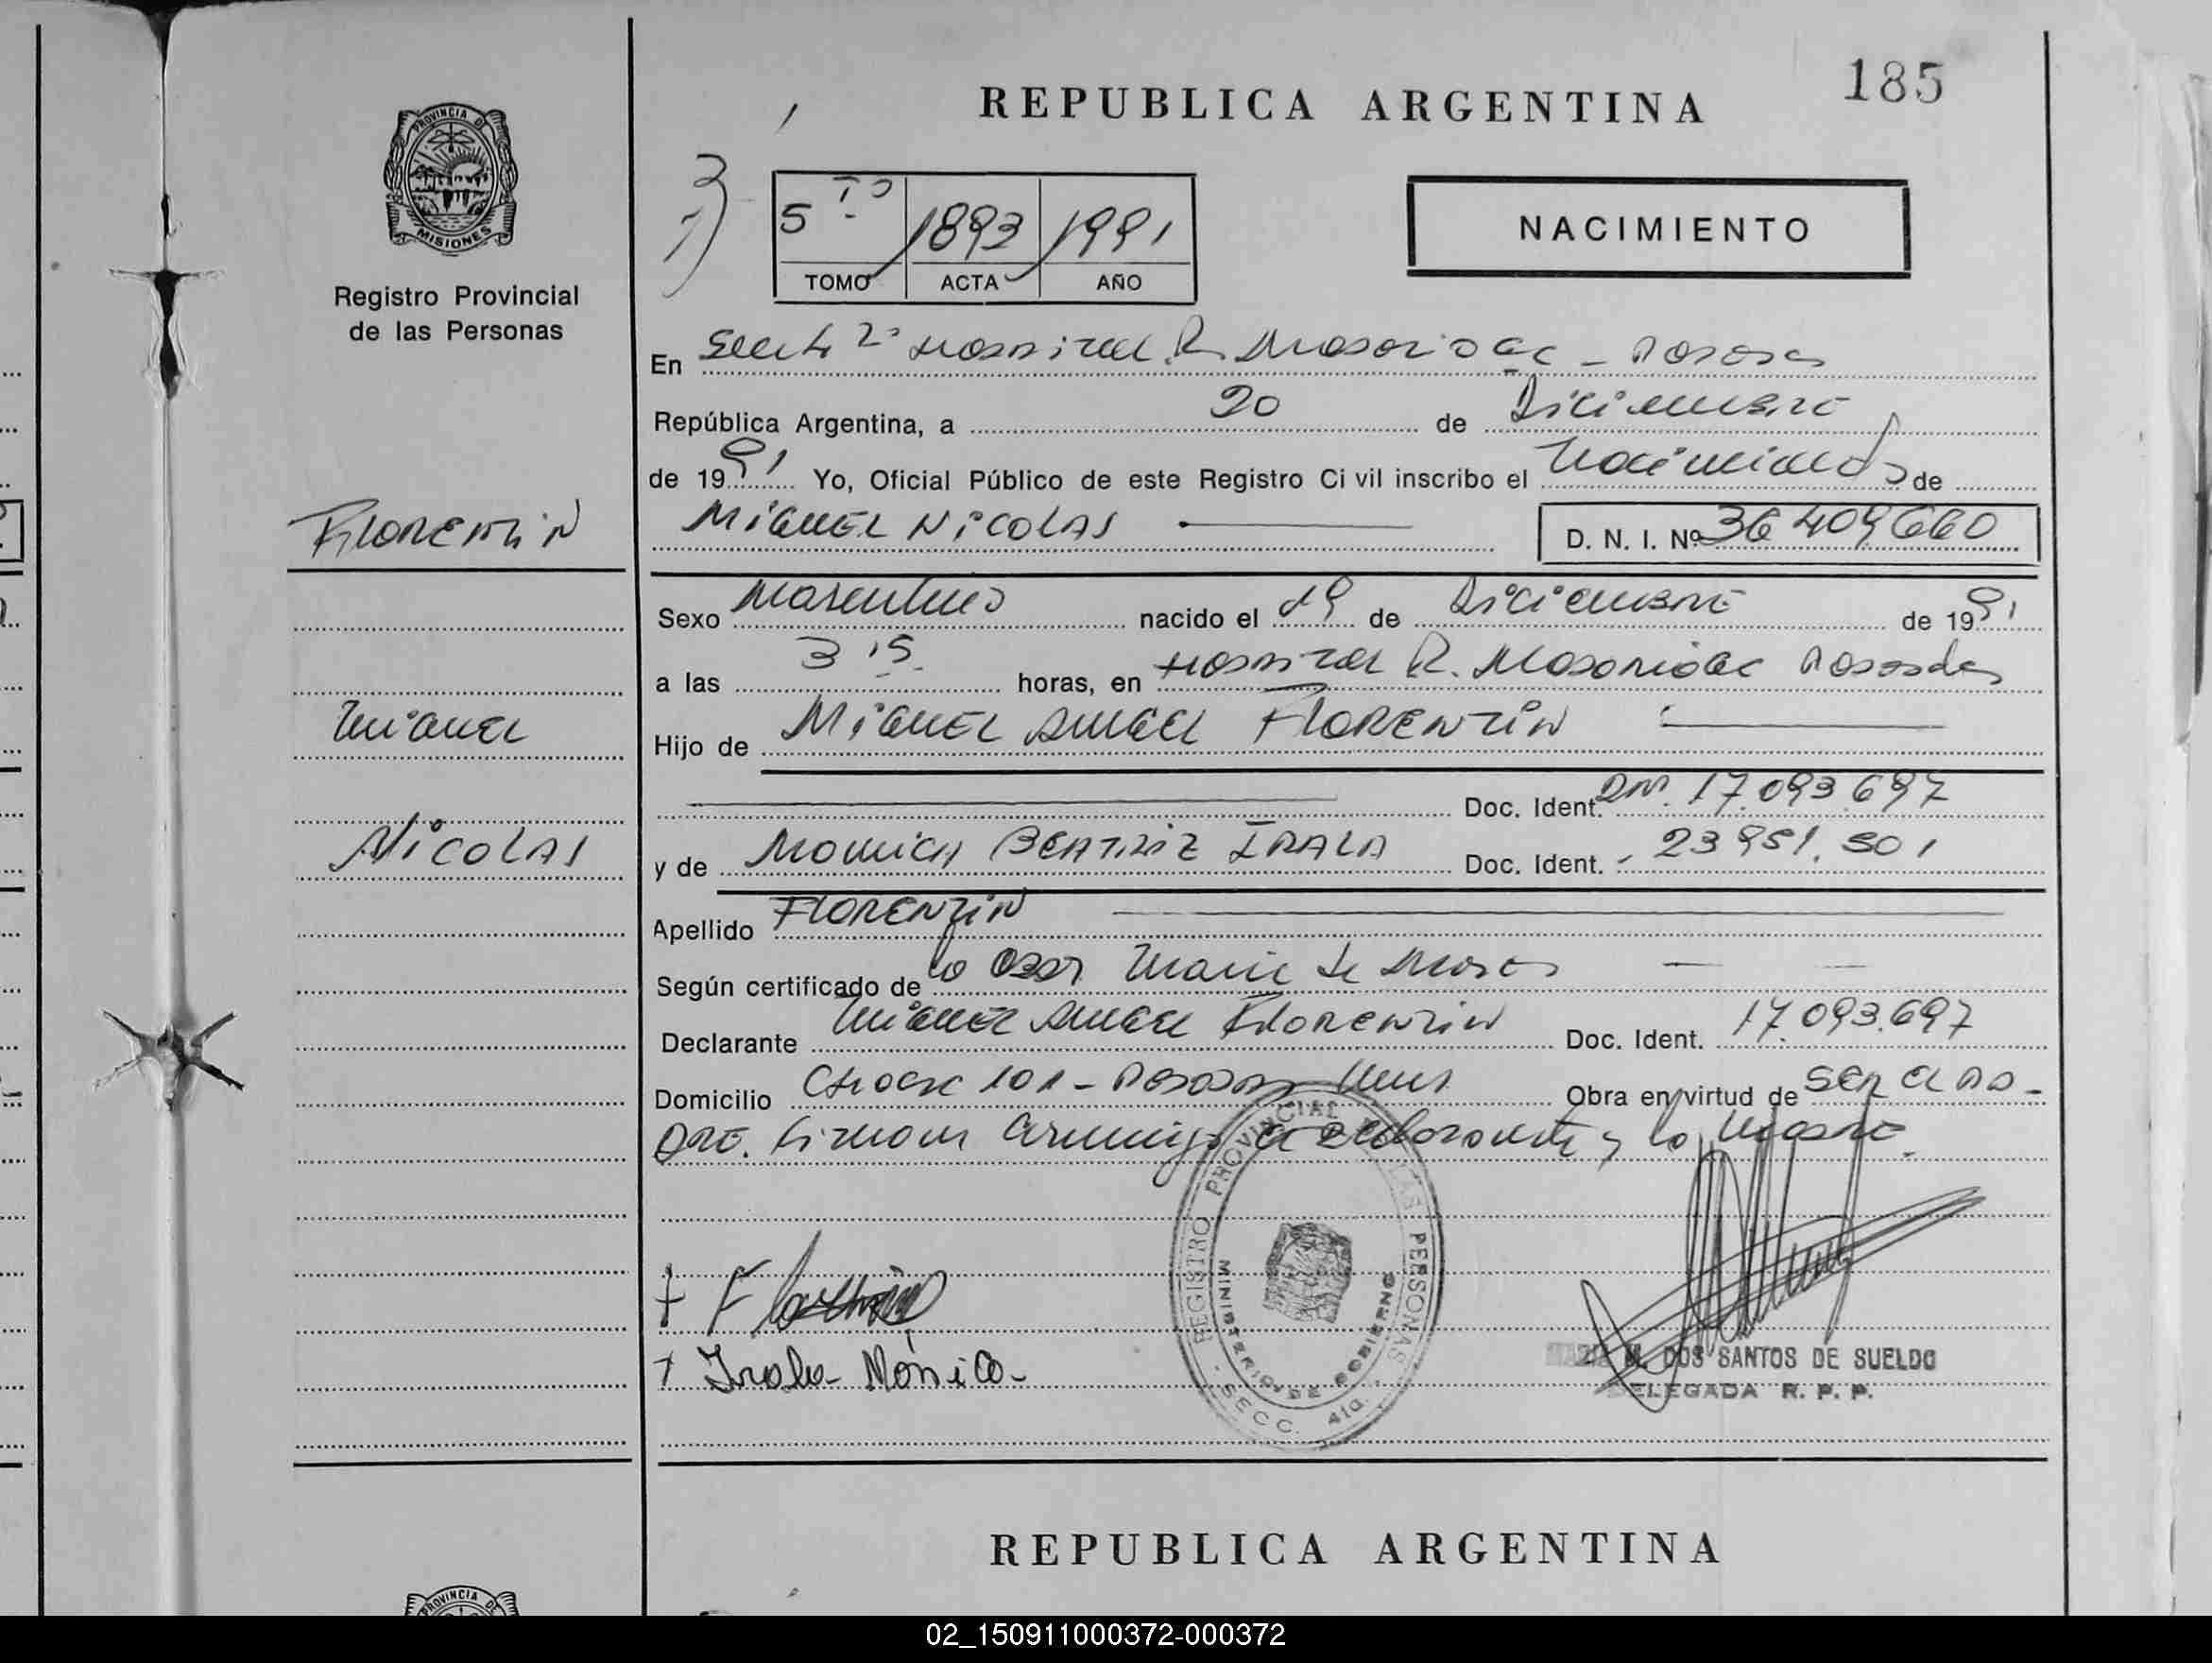 185
REPUBLICA ARGENTINA
PROVINCIA DE
MISIONES
Registro Provincial
de las Personas
5to 1893 1991
TOMO ACTA AÑO
NACIMIENTO
En 2a Hospital R. Madariaga - Posadas
República Argentina, a 20 de Diciembre
de 1991 Yo, Oficial Público de este Registro Civil inscribo el Nacimiento de
Florentin
MIGUEL NICOLAS
D. N. I. Nº 36 409 660
Sexo Masculino nacido el 19 de Diciembre de 1991
a las 3 15 horas, en Hospital R. Madariaga Posadas
Miguel
Hijo de MIGUEL ANGEL FLORENTIN
Doc. Ident. DNI. 17.093.697
Nicolas
y de MONICA BEATRIZ IRALA Doc. Ident. 23 951.501
Apellido FLORENTIN
Según certificado de la Obst Maria de
Declarante Miguel Angel Florentin Doc. Ident. 17.093.697
Domicilio 101 - Posadas Obra en virtud de ser el pa-
dre. Firman el declarante y la Madre.
REGISTRO PROVINCIAL LAS PERSONAS
MINISTERIO DE GOBIERNO
SECC. 4ta.
+ Florentin
+ Irala Mónica
M. DOS SANTOS DE SUELDO
DELEGADA R. P. P.
REPUBLICA ARGENTINA
PROVINCIA DE
02_150911000372-000372